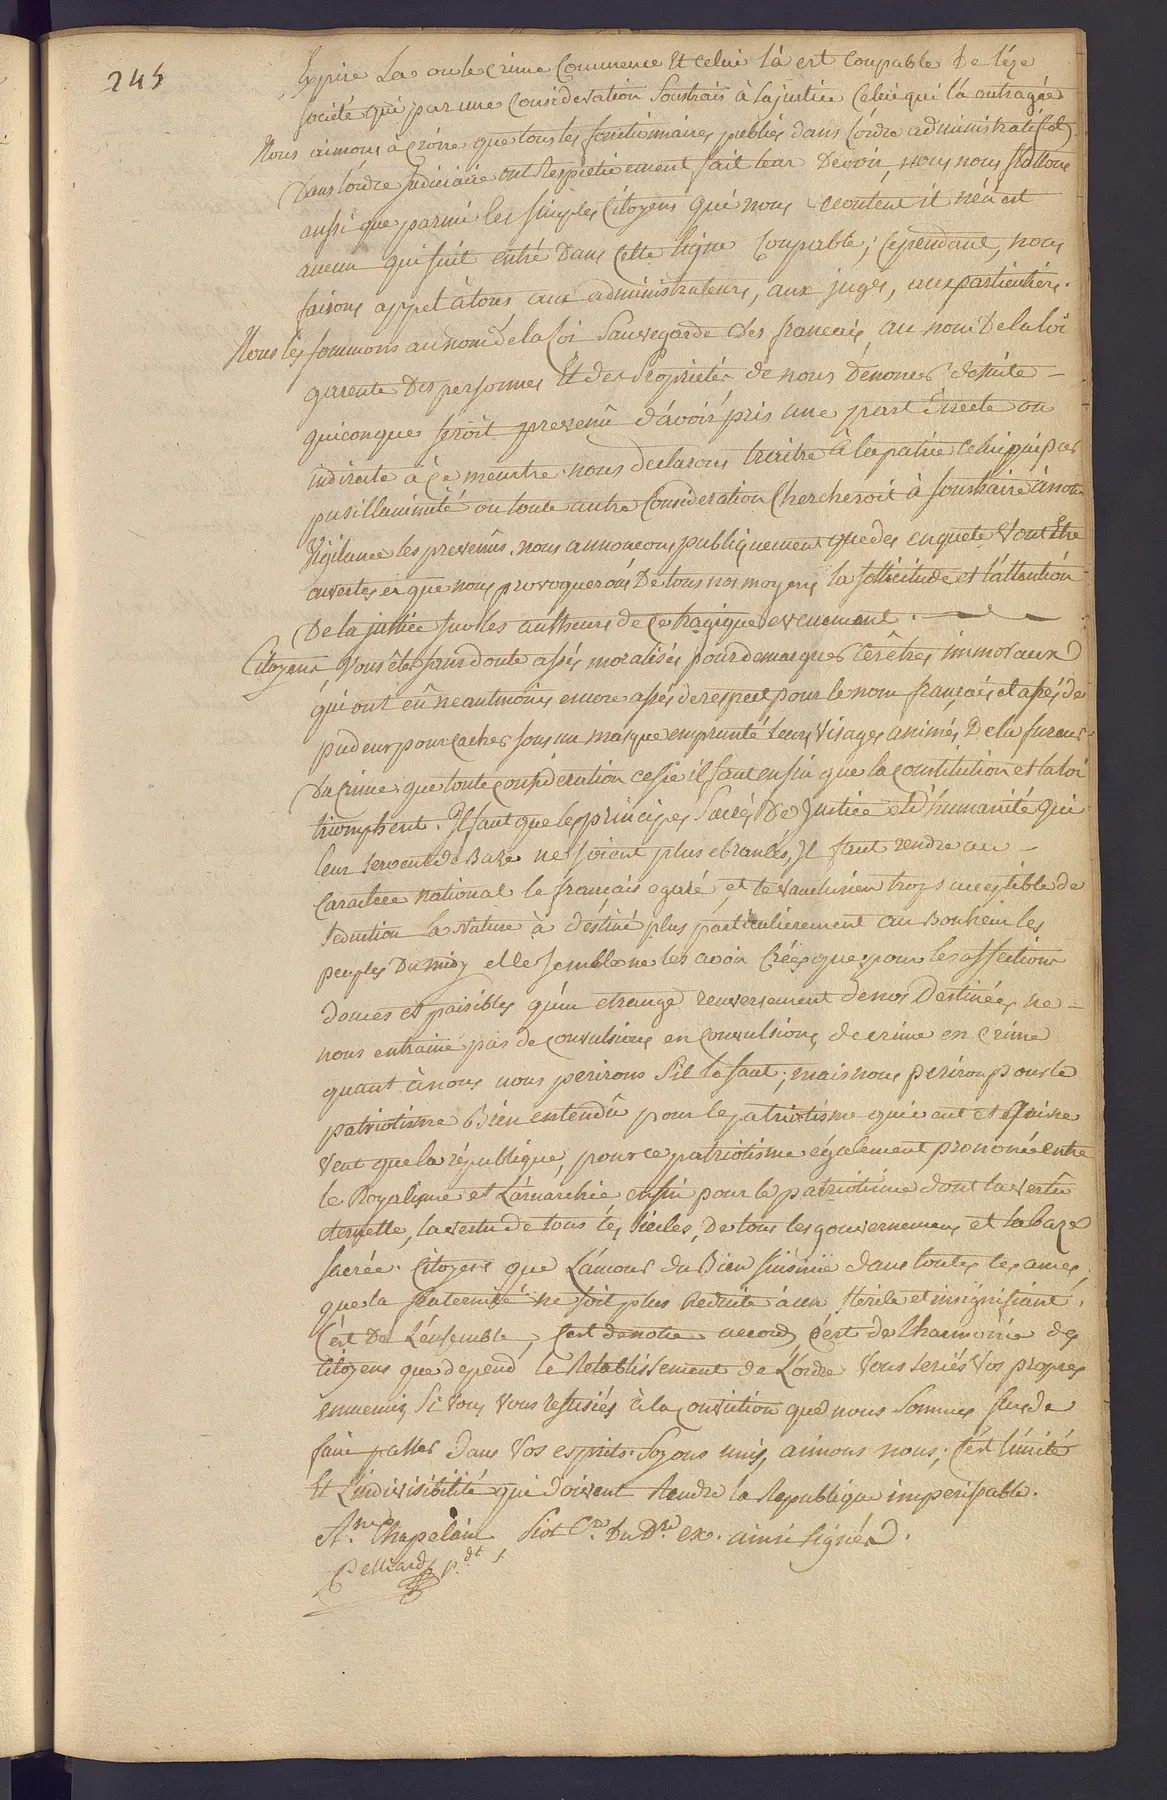 245
Expire La ou le crime Commence Et celui là est coupable De léze
société qui par une Considération Soustrais à la justice Celui qui l'a outragée
Nous aimons a Croire que tous les fonctionnaires publics dans l'ordre administratif et
Dans l'ordre Judiciaire ont Respectivement fait leur Devoir, nous nous flattons
aussi que parmi les simples Citoyens qui nous écoutent il n'en est
aucun qui soit entré Dans Cette ligue Coupable; Cependant, nous
faisons appel à tous aux administrateurs, aux juges, aux particuliers.
Nous les sommons au nom de la Loi Sauvegarde des francais, au nom De la loi
garente Des personnes Et des Propriétés de nous Dénoncer de suite
quiconque seroit prevenû d'avoir pris une part directe ou
indirecte à ce meurtre. nous declarons traitre à la patrie celui qui par
pusillanimité ou toute autre Consideration Chercheroit à soustraire à notre
Vigilance les prevenûs. nous annoncons publiquement que des enquetes Vont Etre
ouvertes et que nous provoquerons De tous nos moyens la sollicitude et l'attention
De la justice sur les autheurs de Ce tragique evenement.
Citoyens, Vous êtes sans doute assés moralisés pour demasquer Ces êtres immoraux
qui ont eû neantmoins encore assés de respect pour le nom français et assés de
pudeur pour cacher sous un masque emprunté Leurs Visages animés De la fureur
Du Crime. que toute consideration cesse il faut enfin que la Constitution et la loi
triomphent. Il faut que les principes Sacrés De Justice et D'humanité qui
leur servent de Baze ne soient plus ebranlés, Il faut rendre au
Caractere national le français egaré, et le vauclusien trop susceptible de
Seduction La Nature à destiné plus particulierement au Bonheur les
peuples Du midy elle semble ne les avoir Créés que pour les affections
douces et paisibles qu'un etrange renversement de nos Destinées ne
nous entraine pas de convulsions en Convulsions, de crime en Crime
quant à nous nous perirons S'il le faut; mais nous perirons pour le
patriotisme Bien entendû pour le patriotisme qui veut et qui ne
veut que la république, pour ce patriotisme également prononcé entre
le Royalisme et L'anarchie enfin pour le patriotisme dont la vertu
eternelle, la vertu de tous les Siecles, De tous les gouvernemens et la baze
sacrée. Citoyens que L'amour du Bien s'insinüe dans toutes les ames,
que la fraternité ne soit plus Reduite à un stérile et insignifiant.
C'est De L'ensemble, C'est de notre accord, C'est de L'harmonie des
Citoyens que depend le Retablissement de L'ordre Vous seriés Vos propres
ennemis Si Vous Vous refusiés à la Conviction que nous Sommes surs de
faire passer Dans Vos esprits. Soyons unis, aimons nous; C'est l'unité
Et L'indivisibilité qui doivent Rendre la Republique imperissable.
Chapelain, Siot Cre Du Dre ex. ainsi signés.
Pdt